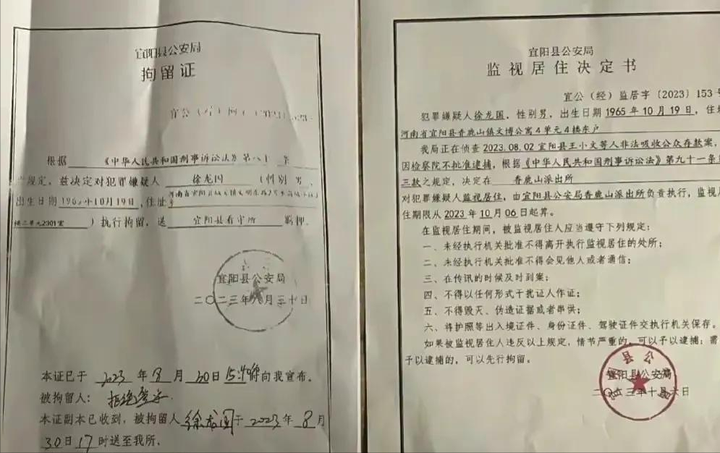 宜阳县公安局
拘留证
根据《中华人民共和国刑事诉讼法》第八十条
之规定，兹决定对犯罪嫌疑人 徐龙国 (性别 男
出生日期1965年10月19日，住址
)执行拘留，送 宜阳县看守所 羁押。
宜阳县公安局
二〇二三年八月三十日
本证已于2023年8月30日15时 向我宣布。
被拘留人：
本证副本已收到，被拘留人徐龙国于2023年8月
30日17时送至我所。
宜阳县公安局
监视居住决定书
宜公（经）监居字〔2023〕153号
犯罪嫌疑人徐龙国，性别男，出生日期1965年10月19日，住
河南省宜阳县香鹿山镇文博公寓4单元4楼东户
我局正在侦查2023.08.02宜阳县王小文等人非法吸收公众存款案，
因检察院不批准逮捕，根据《中华人民共和国刑事诉讼法》第九十一条
三款之规定，决定在 香鹿山派出所
对犯罪嫌疑人监视居住，由宜阳县公安局香鹿山派出所负责执行，监视
住期限从2023年10月06日起算。
在监视居住期间，被监视居住人应当遵守下列规定：
一、未经执行机关批准不得离开执行监视居住的处所；
二、未经执行机关批准不得会见他人或者通信；
三、在传讯的时候及时到案；
四、不得以任何形式干扰证人作证；
五、不得毁灭、伪造证据或者串供；
六、将护照等出入境证件、身份证件、驾驶证件交执行机关保存。
如果被监视居住人违反以上规定，情节严重的，可以予以逮捕；需
予以逮捕的，可以先行拘留。
宜阳县公安局
二〇二三年十月六日